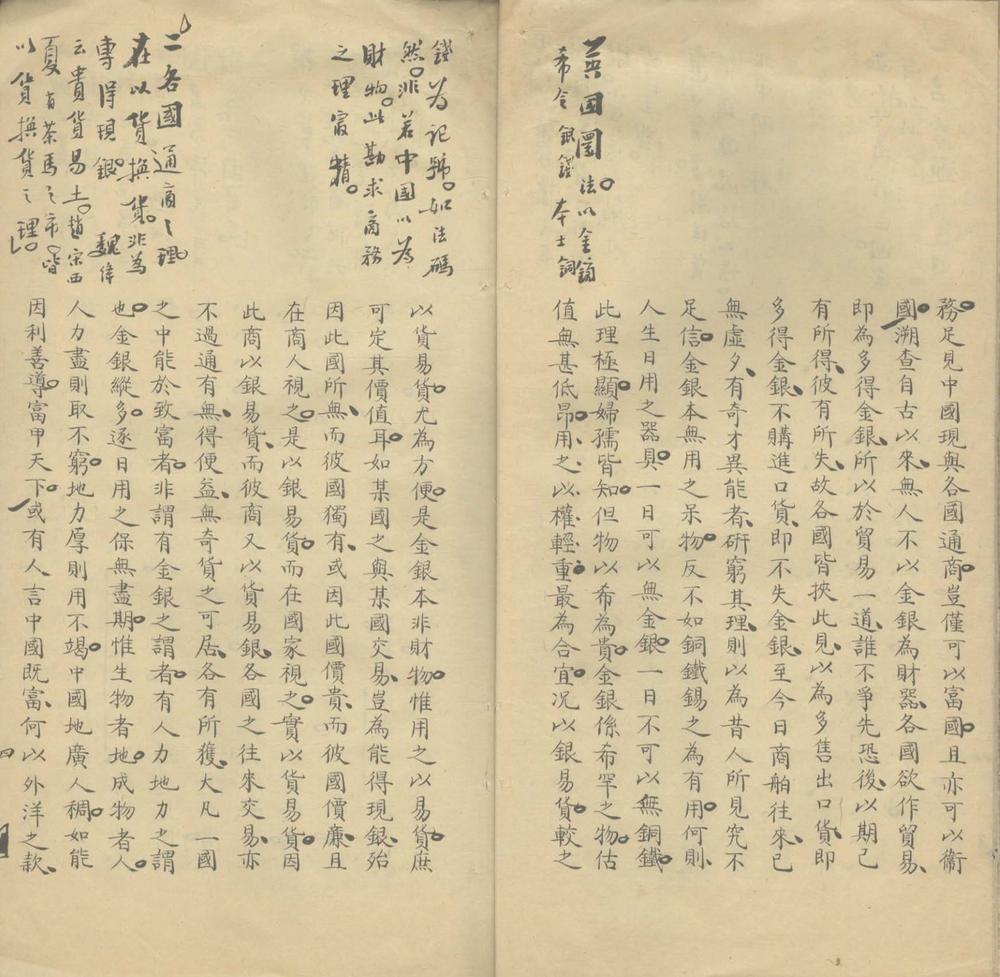 英國圜法以金鎊
希令銀錢本士銅
錢為記號如法碼
然非若中國以為
財物此勘求商務
之理最精
務足見中國現與各國通商豈僅可以富國且亦可以衞
國溯查自古以來無人不以金銀為財器各國欲作貿易
即為多得金銀所以於貿易一道誰不爭先恐後以期己
有所得彼有所失故各國皆挾此見以為多售出口貨即
多得金銀不購進口貨即不失金銀至今日商舶往來已
無虛夕有奇才異能者研窮其理則以為昔人所見究不
足信金銀本無用之呆物反不如銅鐵錫之為有用何則
人生日用之器具一日可以無金銀一日不可以無銅鐵
此理極顯婦孺皆知但物以希為貴金銀係希罕之物估
值無甚低昂用之以權輕重最為合宜况以銀易貨較之
二各國通商之理
在以貨換貨非為
專得現銀魏偉
云貴貨易土趙宋西
夏有茶馬之市皆
以貨換貨之理
以貨易貨尤為方便是金銀本非財物惟用之以易貨庶
可定其價值耳如某國之與某國交易豈為能得現銀殆
因此國所無而彼國獨有或因此國價貴而彼國價廉且
在商人視之是以銀易貨而在國家視之實以貨易貨因
此商以銀易貨而彼商又以貨易銀各國之往來交易亦
不過通有無得便益無奇貨之可居各有所獲大凡一國
之中能於致富者非謂有金銀之謂者有人力地力之謂
也金銀縱多逐日用之保無盡期惟生物者地成物者人
人力盡則取不窮地力厚則用不竭中國地廣人稠如能
因利善導富甲天下或有人言中國既富何以外洋之款
四